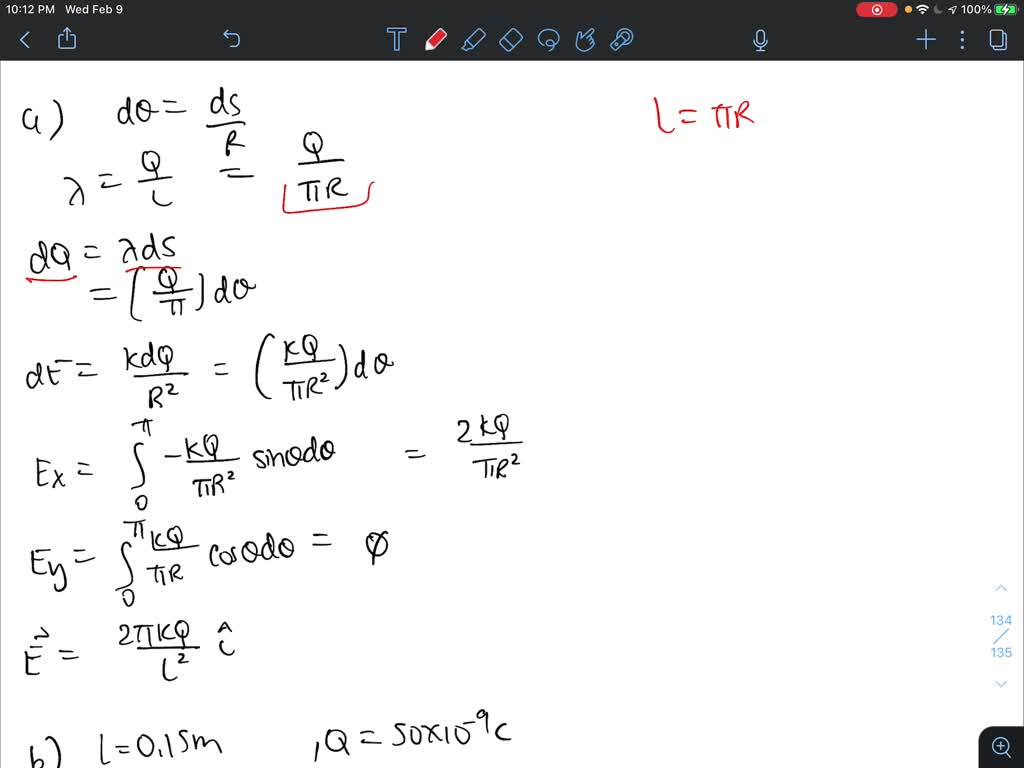 10:12 PM Wed Feb 9
100%
T
a) dθ = ds/R
l = πR
λ = Q/L = Q/πR
dQ = λds
= (Q/π)dθ
dE = kdQ/R² = (kQ/πR²)dθ
Ex = ∫₀^π -kQ/πR² sinθdθ = 2kQ/πR²
Ey = ∫₀^π kQ/πR cosθdθ = ∅
E⃗ = 2πkQ/l² î
134
/
135
b) l = 0.15m , Q = 50x10⁻⁹C